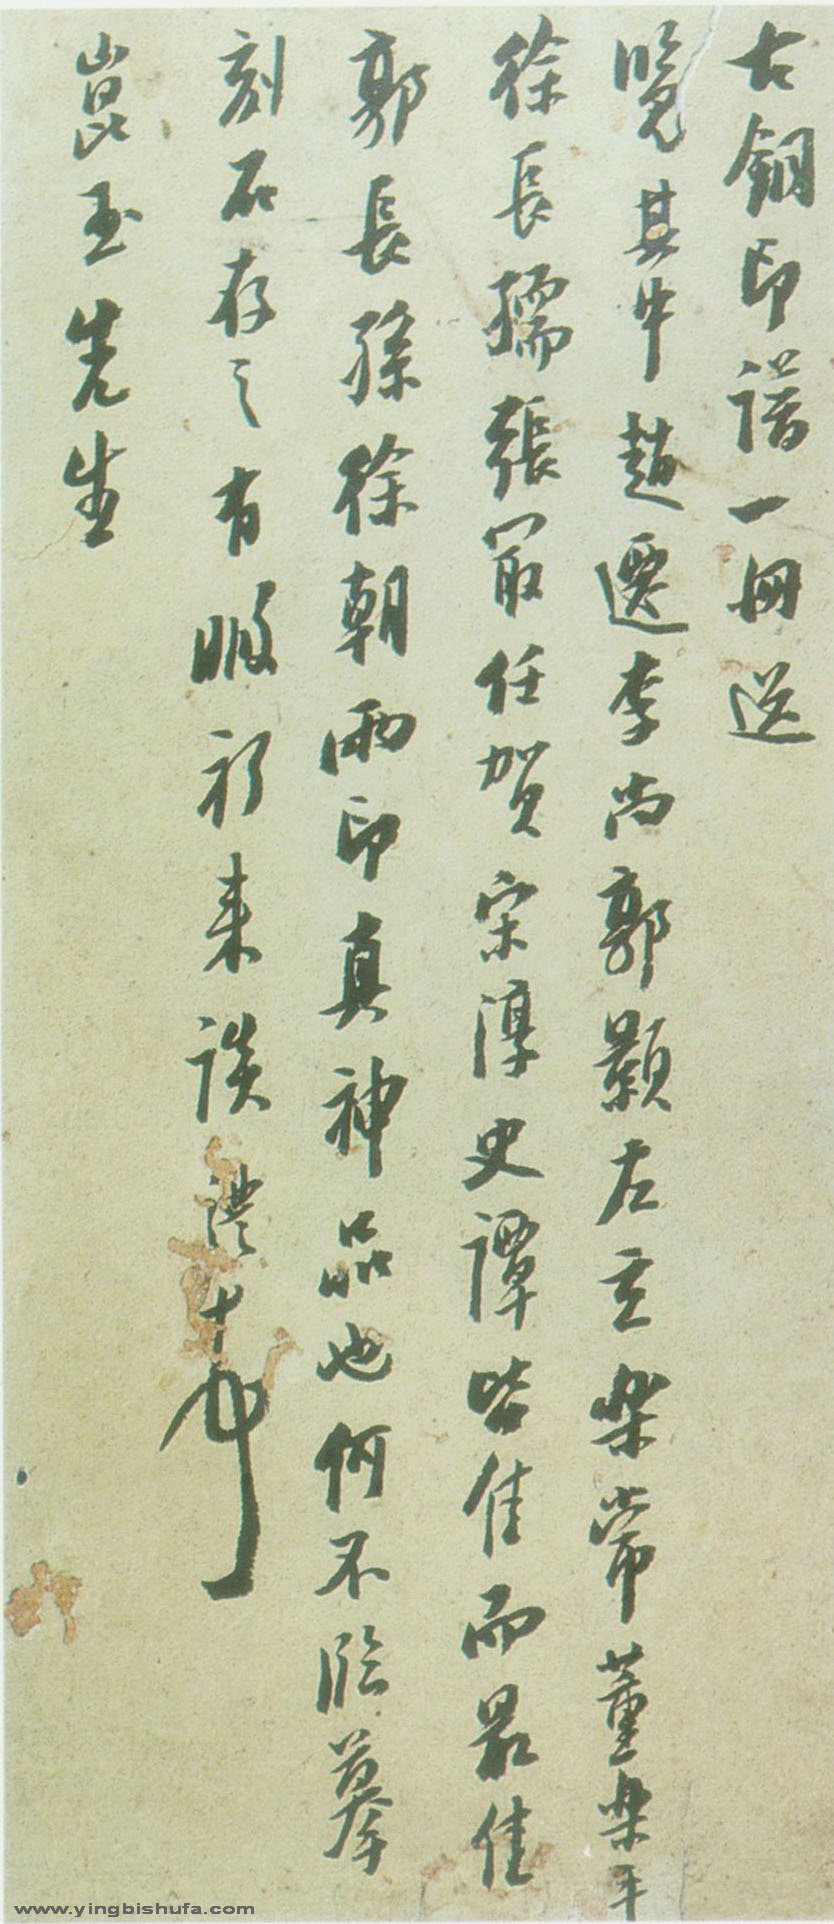 古銅印譜一冊送
覽其中趙遷李尚郭顥左立樂常董樂平
徐長孺張冣任賀宋淳史譚皆佳而最佳
郭長孫徐朝兩印真神品也何不臨摹
刻石存之有暇祈来談
崑玉先生
www.yingbishufa.com